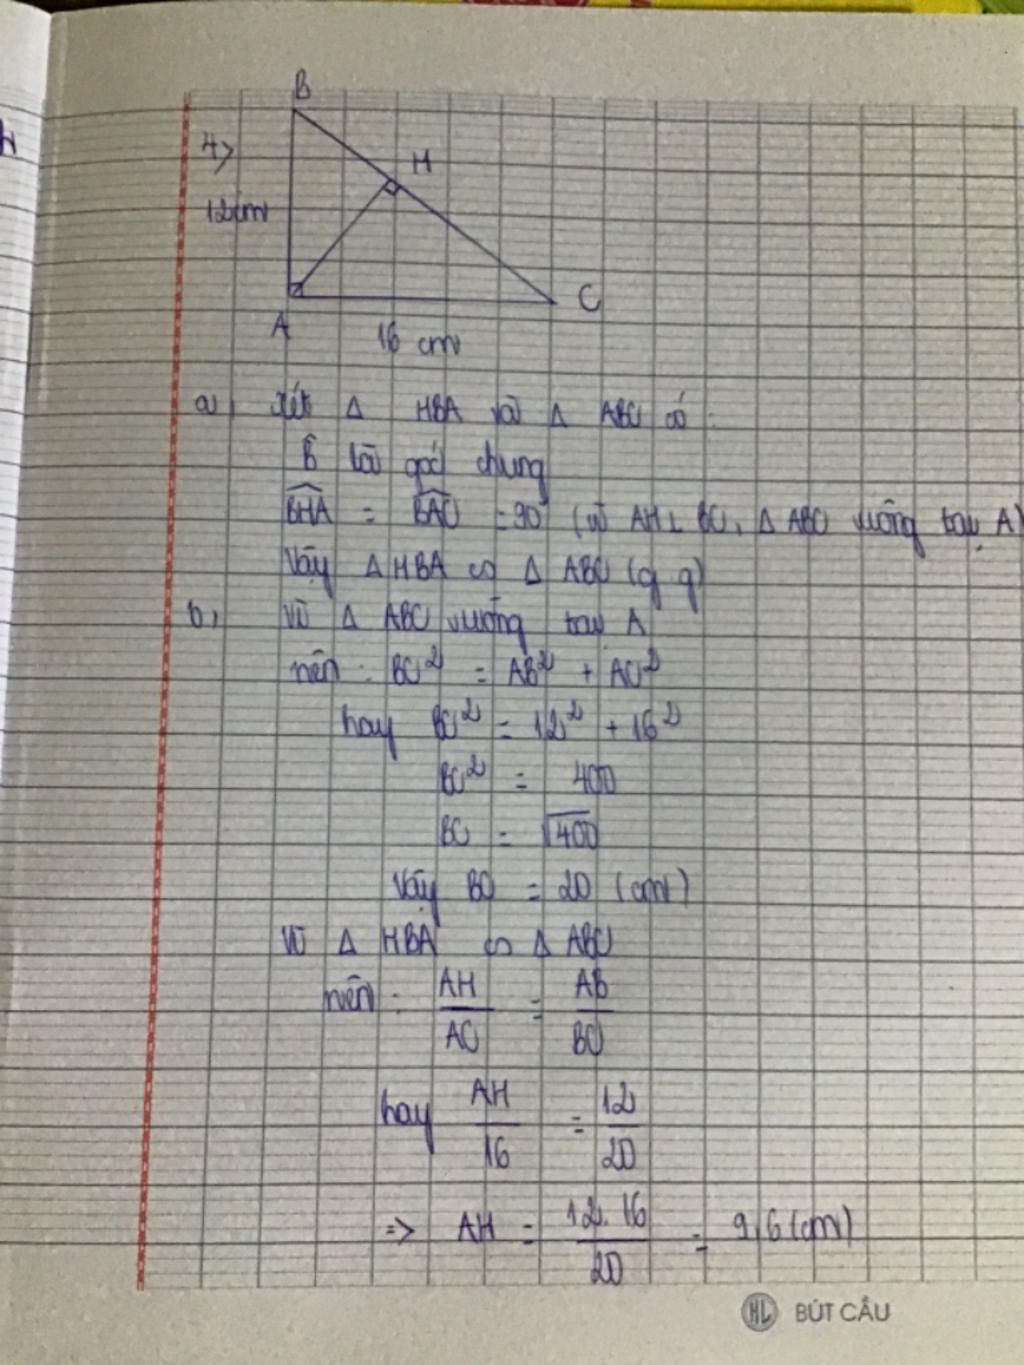 B
4>
H
12cm
A
C
16 cm
a, Xét Δ HBA và Δ ABC có :
B̂ là góc chung
B͡HA = B͡AC = 90° (vì AH ⊥ BC, Δ ABC vuông tại A)
Vậy Δ HBA ∽ Δ ABC (g g)
b, Vì Δ ABC vuông tại A
nên : BC² = AB² + AC²
hay BC² = 12² + 16²
BC² = 400
BC = √400
Vậy BC = 20 (cm)
Vì Δ HBA ∽ Δ ABC
nên : AH/AC = AB/BC
hay AH/16 = 12/20
=> AH = 12.16/20 = 9,6 (cm)
HL BÚT CÂU